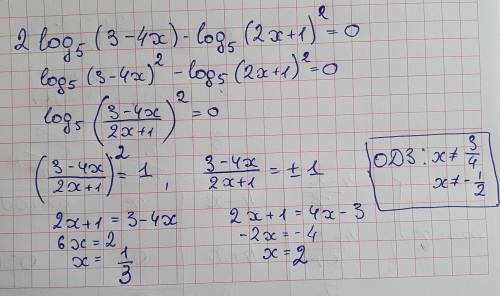 2 log₅ (3-4x) - log₅ (2x+1)² = 0
log₅ (3-4x)² - log₅ (2x+1)² = 0
log₅ ((3-4x)/(2x+1))² = 0
((3-4x)/(2x+1))² = 1, (3-4x)/(2x+1) = ± 1
ОДЗ: x ≠ 3/4
x ≠ -1/2
2x+1 = 3-4x
6x = 2
x = 1/3
2x+1 = 4x-3
-2x = -4
x = 2